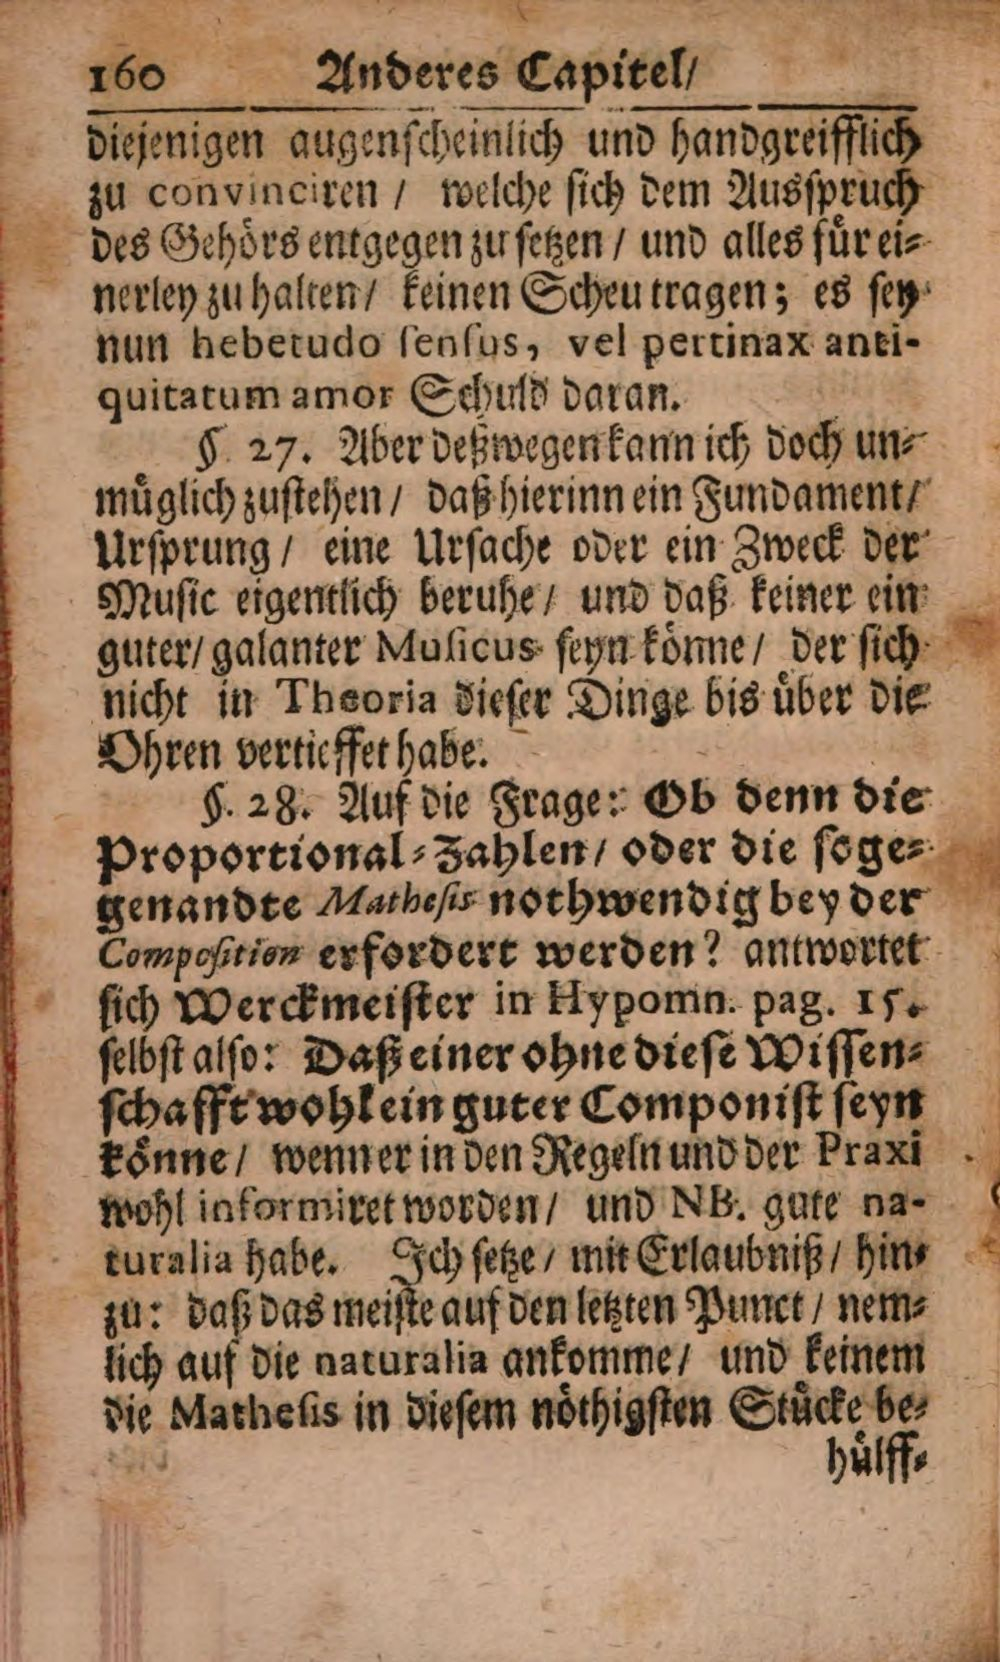 160 Anderes Capitel/
diejenigen augenscheinlich und handgreifflich
zu convinciren / welche sich dem Ausspruch
des Gehörs entgegen zu setzen / und alles für ei-
nerley zu halten / keinen Scheu tragen; es sey
nun hebetudo sensus, vel pertinax anti-
quitatum amor Schuld daran.
§. 27. Aber deßwegen kann ich doch un-
müglich zustehen / daß hierinn ein Fundament /
Ursprung / eine Ursache oder ein Zweck der
Music eigentlich beruhe / und daß keiner ein
guter / galanter Musicus seyn könne / der sich
nicht in Theoria dieser Dinge bis über die
Ohren vertieffet habe.
§. 28. Auf die Frage: Ob denn die
Proportional-Zahlen / oder die soge-
genandte Mathesis nothwendig bey der
Composition erfordert werden? antwortet
sich Werckmeister in Hypomn. pag. 15.
selbst also: Daß einer ohne diese Wissen-
schafft wohl ein guter Componist seyn
könne / wenn er in den Regeln und der Praxi
wohl informiret worden / und NB. gute na-
turalia habe. Ich setze / mit Erlaubniß / hin-
zu: daß das meiste auf den letzten Punct / nem-
lich auf die naturalia ankomme / und keinem
die Mathesis in diesem nöthigsten Stücke be-
hülff-